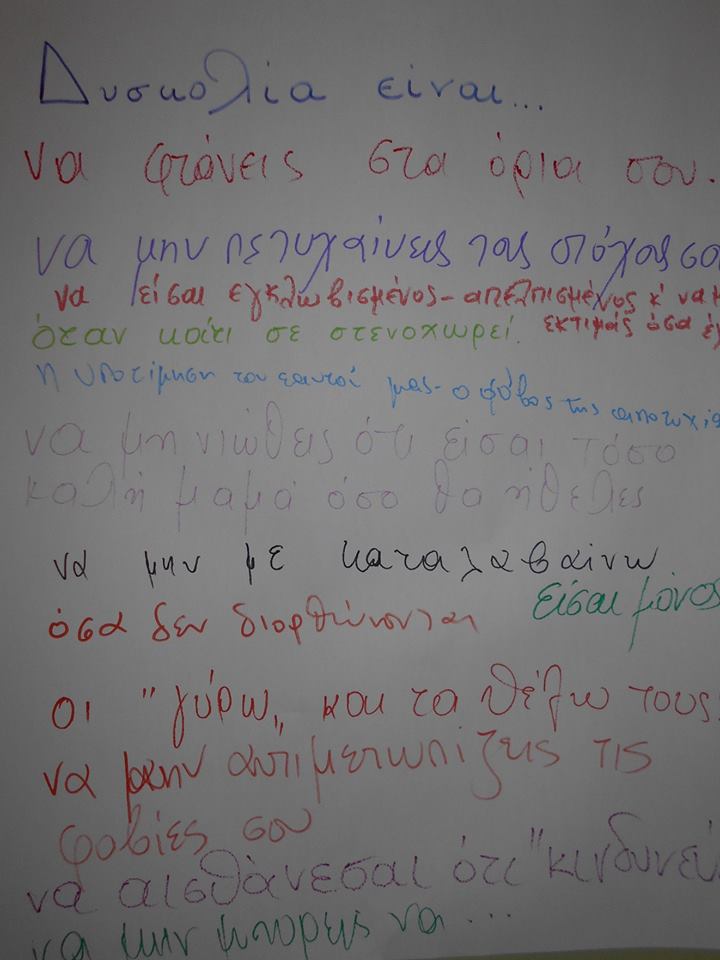 Δυσκολία είναι...
να φτάνεις στα όρια σου.
να μην πετυχαίνεις τους στόχους σο
να είσαι εγκλωβισμένος-απελπισμένος κ' να μ
εκτιμάς όσα έχ
όταν κάτι σε στενοχωρεί.
η υποτίμηση του εαυτού μας-ο φόβος της αποτυχία
να μη νιώθεις ότι είσαι τόσο
καλή μαμά όσο θα ήθελες
να μην με καταλαβαίνω
είσαι μόνος
όσα δεν διορθώνονται
οι "γύρω" και τα θέλω τους.
να μην αντιμετωπίζεις τις
φοβίες σου
να αισθάνεσαι ότι "κινδυνεύ
να μην μπορείς να...